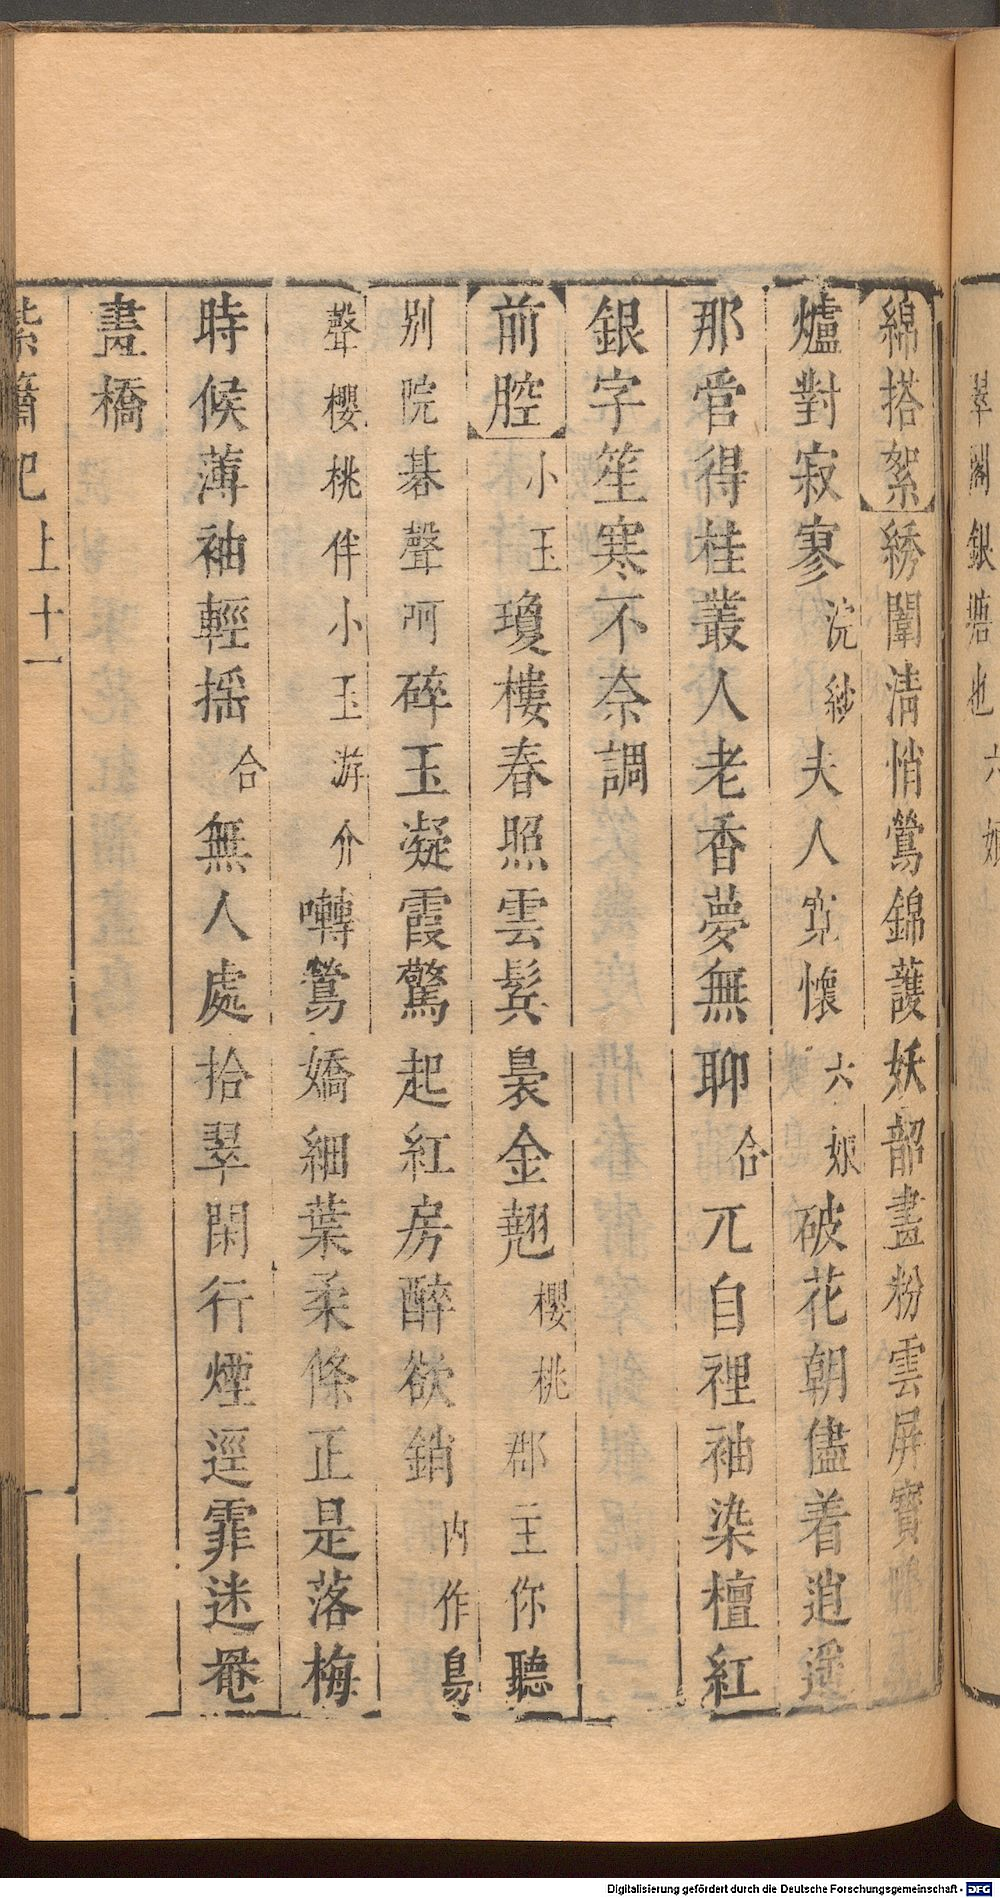 翠閣銀塘也六娘
綿搭絮綉闈清悄鶯錦護妖韶畫粉雲屏寶鴨
爐對寂寥浣紗夫人寬懷六娘破花朝儘着逍遥
那當得桂叢人老香夢無聊合兀自裡袖染檀紅
銀字笙寒不奈調
前腔小玉瓊樓春照雲鬂裊金翹櫻桃郡主你聽
别院碁聲呵碎玉凝霞驚起紅房醉欲銷内作鳥
聲櫻桃伴小玉游介囀鶯嬌細葉柔條正是落梅
時候薄袖輕揺合無人處拾翠閑行煙逕霏迷罨
畫橋
紫簫記上十一
Digitalisierung gefördert durch die Deutsche Forschungsgemeinschaft - DFG